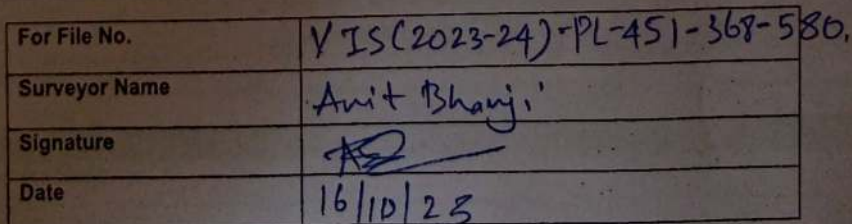 For File No. VIS(2023-24)-PL-451-368-580.
Surveyor Name Anit Bhanji
Signature
Date 16/10/23